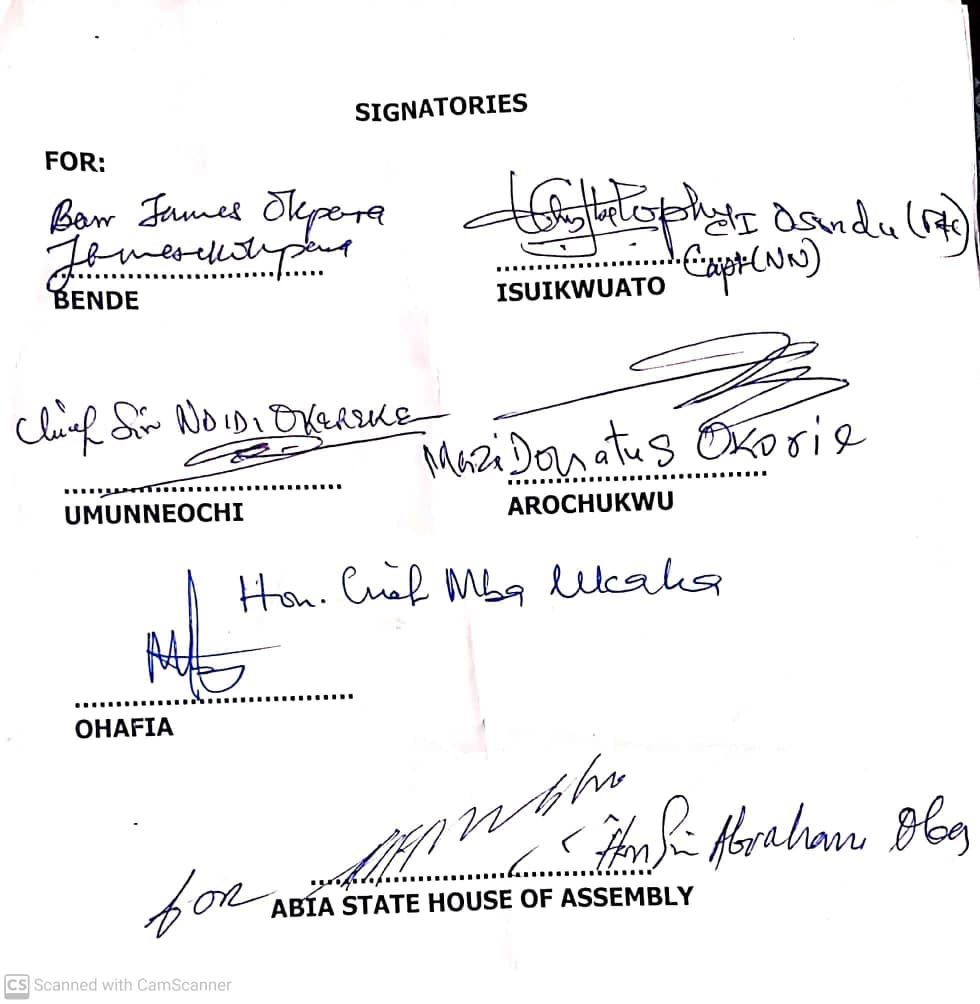 SIGNATORIES
FOR:
Barr James Okpara
BENDE
I Osondu (Rtd)
Capt (NN)
ISUIKWUATO
Chief Sir NDIDI OKEREKE
UMUNNEOCHI
Mazi Donatus Okorie
AROCHUKWU
Hon. Chief Mba Ukaha
OHAFIA
Hon Sir Abraham Oba
for ABIA STATE HOUSE OF ASSEMBLY
CS Scanned with CamScanner